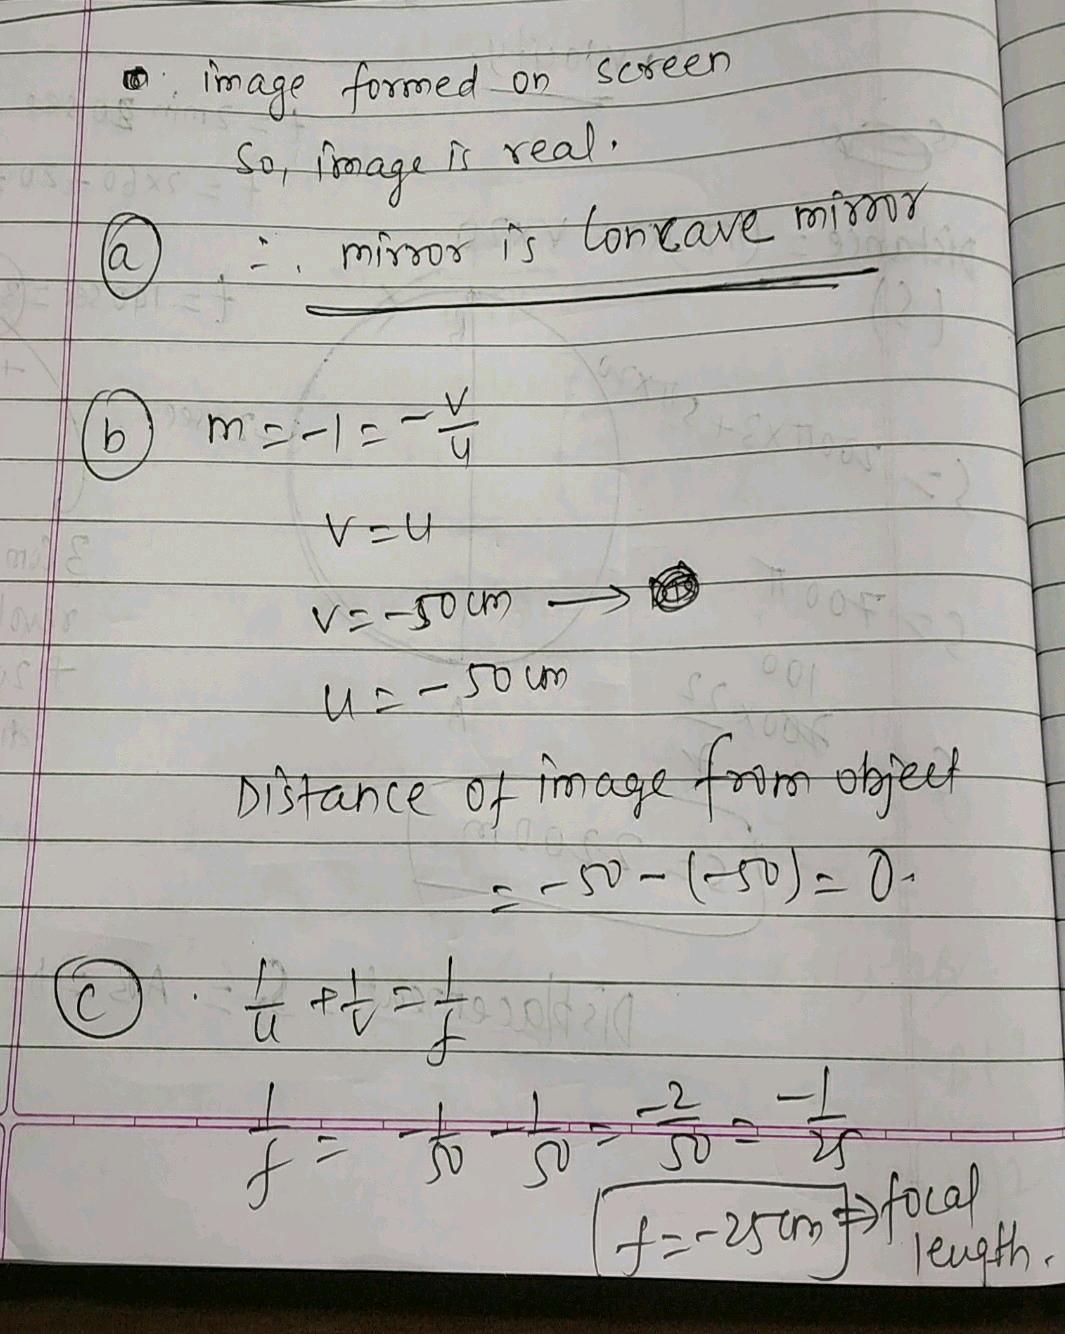 image formed on screen
So, image is real.
(a) ∴ mirror is Concave mirror
(b) m = -1 = - v/u
v = u
v = -50 cm →
u = -50 cm
Distance of image from object
= -50 - (-50) = 0.
(c) 1/u + 1/v = 1/f
1/f = -1/50 - 1/50 = -2/50 = -1/25
f = -25 cm ⇒ focal
length.